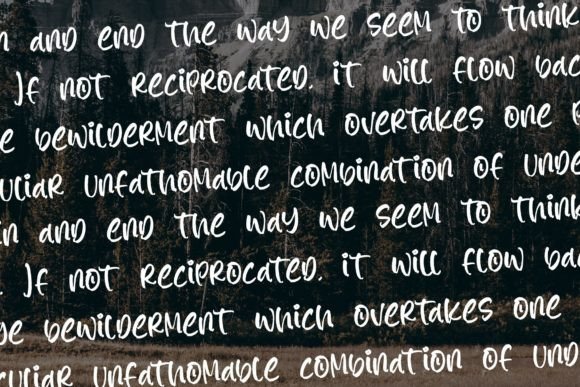 n and end the way we seem to think
. If not reciprocated, it will flow bac
e bewilderment which overtakes one
culiar unfathomable combination of unde
in and end the way we seem to think
. If not reciprocated, it will flow bac
ge bewilderment which overtakes one
culiar unfathomable combination of und